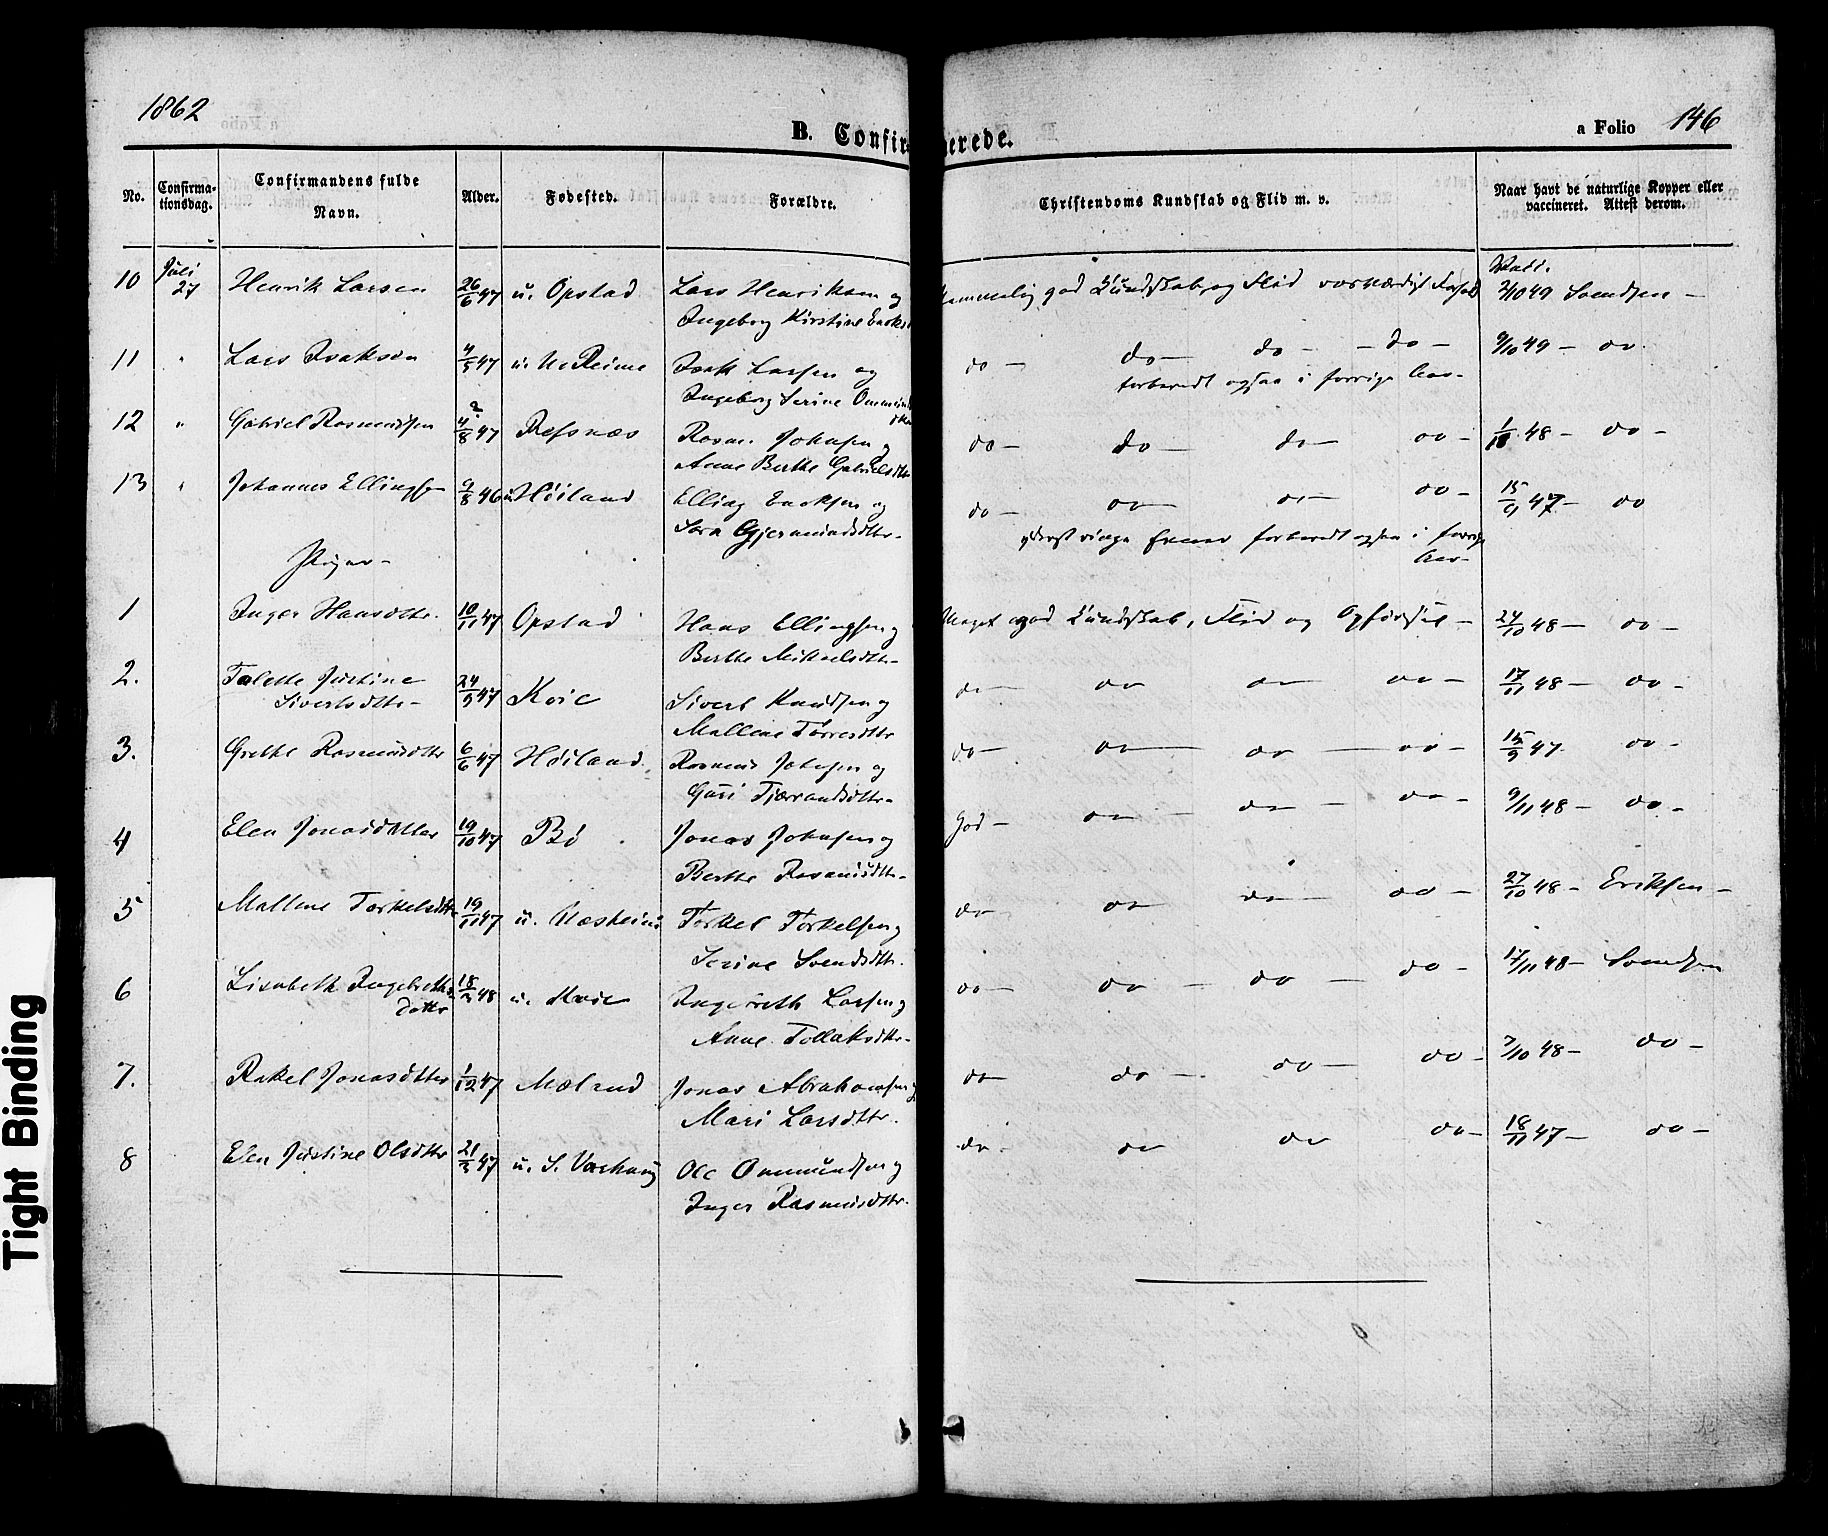 1862
B. Confirmerede.
a Folio 146
No. Confirmationsdag. Confirmandens fulde Navn. Alder. Fødested. Forældre. Christendoms Kundskab og Flid m. v. Naar havt de naturlige Kopper eller vaccineret. Attest derom.
10 Juli 27 Henrik Larsen 26/6 47 u. Opstad Lars Henriksen og god Kundskab og Flid Vacc. 2/10 49 Svendsen –
Ingeborg Kirstine
11 " Lars Isaksen 4/5 47 Isak Larsen og do – do – do – – do – 9/10 49 – do.
Ingeborg Serine forberedt ogsaa i forrige Aar –
12 " Gabriel Rasmussen 4/8 47 Refsnæs Rasm. Johnsen og do – do – do – do – 48 – do –
Anne Berthe Gabrielsdtr
13 " Johannes Ellingsen 9/8 46 u. Høiland Elling og do – do – do – do – 15/9 47 – do
Sara Gjermundsdttr – yderst ringe forberedt ogsaa i forrige Aar –
Piger –
1 Inger Hansdttr. 10/11 47 Opstad Hans Ellingsen og Meget god Kundskab, Flid og Opførsel – 24/10 48 – do –
Berthe Mikaelsdttr –
2. Talette Justine Sivertsdttr – 24/9 47 Kvie Sivert Knudsen og do – do do – do – 17/11 48 – do –
Mallene Tørresdttr
3. Grethe Rasmusdttr 6/6 47 Høiland. Rasmus Johnsen og do – do – do – do – 15/9 47. do –
Guri Tjærandsdttr –
4 Elen Jonasdatter 19/10 47 Bø Jonas Johnsen og God – do – do – do – 9/11 48 – do –
Berthe Rasmusdttr –
5 Mallene Torkelsdttr 19/11 47 u. Næsheim Torkel Torkelsen og do – do – do – do – 27/10 48 – Eriksen –
Serine Svendsdttr.
6 Lisabeth Ingebrethsdatter 18/3 48 u. Kvie Ingebreth Larsen og do – do – do – do – 17/11 48 – Svendsen
Anne Tollaksdttr –
7. Rakel Jonasdtter 1/12 47 Mælund Jonas Abrahamsen og do – do – do – do – 7/10 48 – do –
Mari Larsdttr.
8 Elen Justine Olsdttr 21/3 47 u. S. Varhaug Ole Ommundsen og do – do do do – 18/11 47 – do –
Inger Rasmusdttr.
Tight Binding